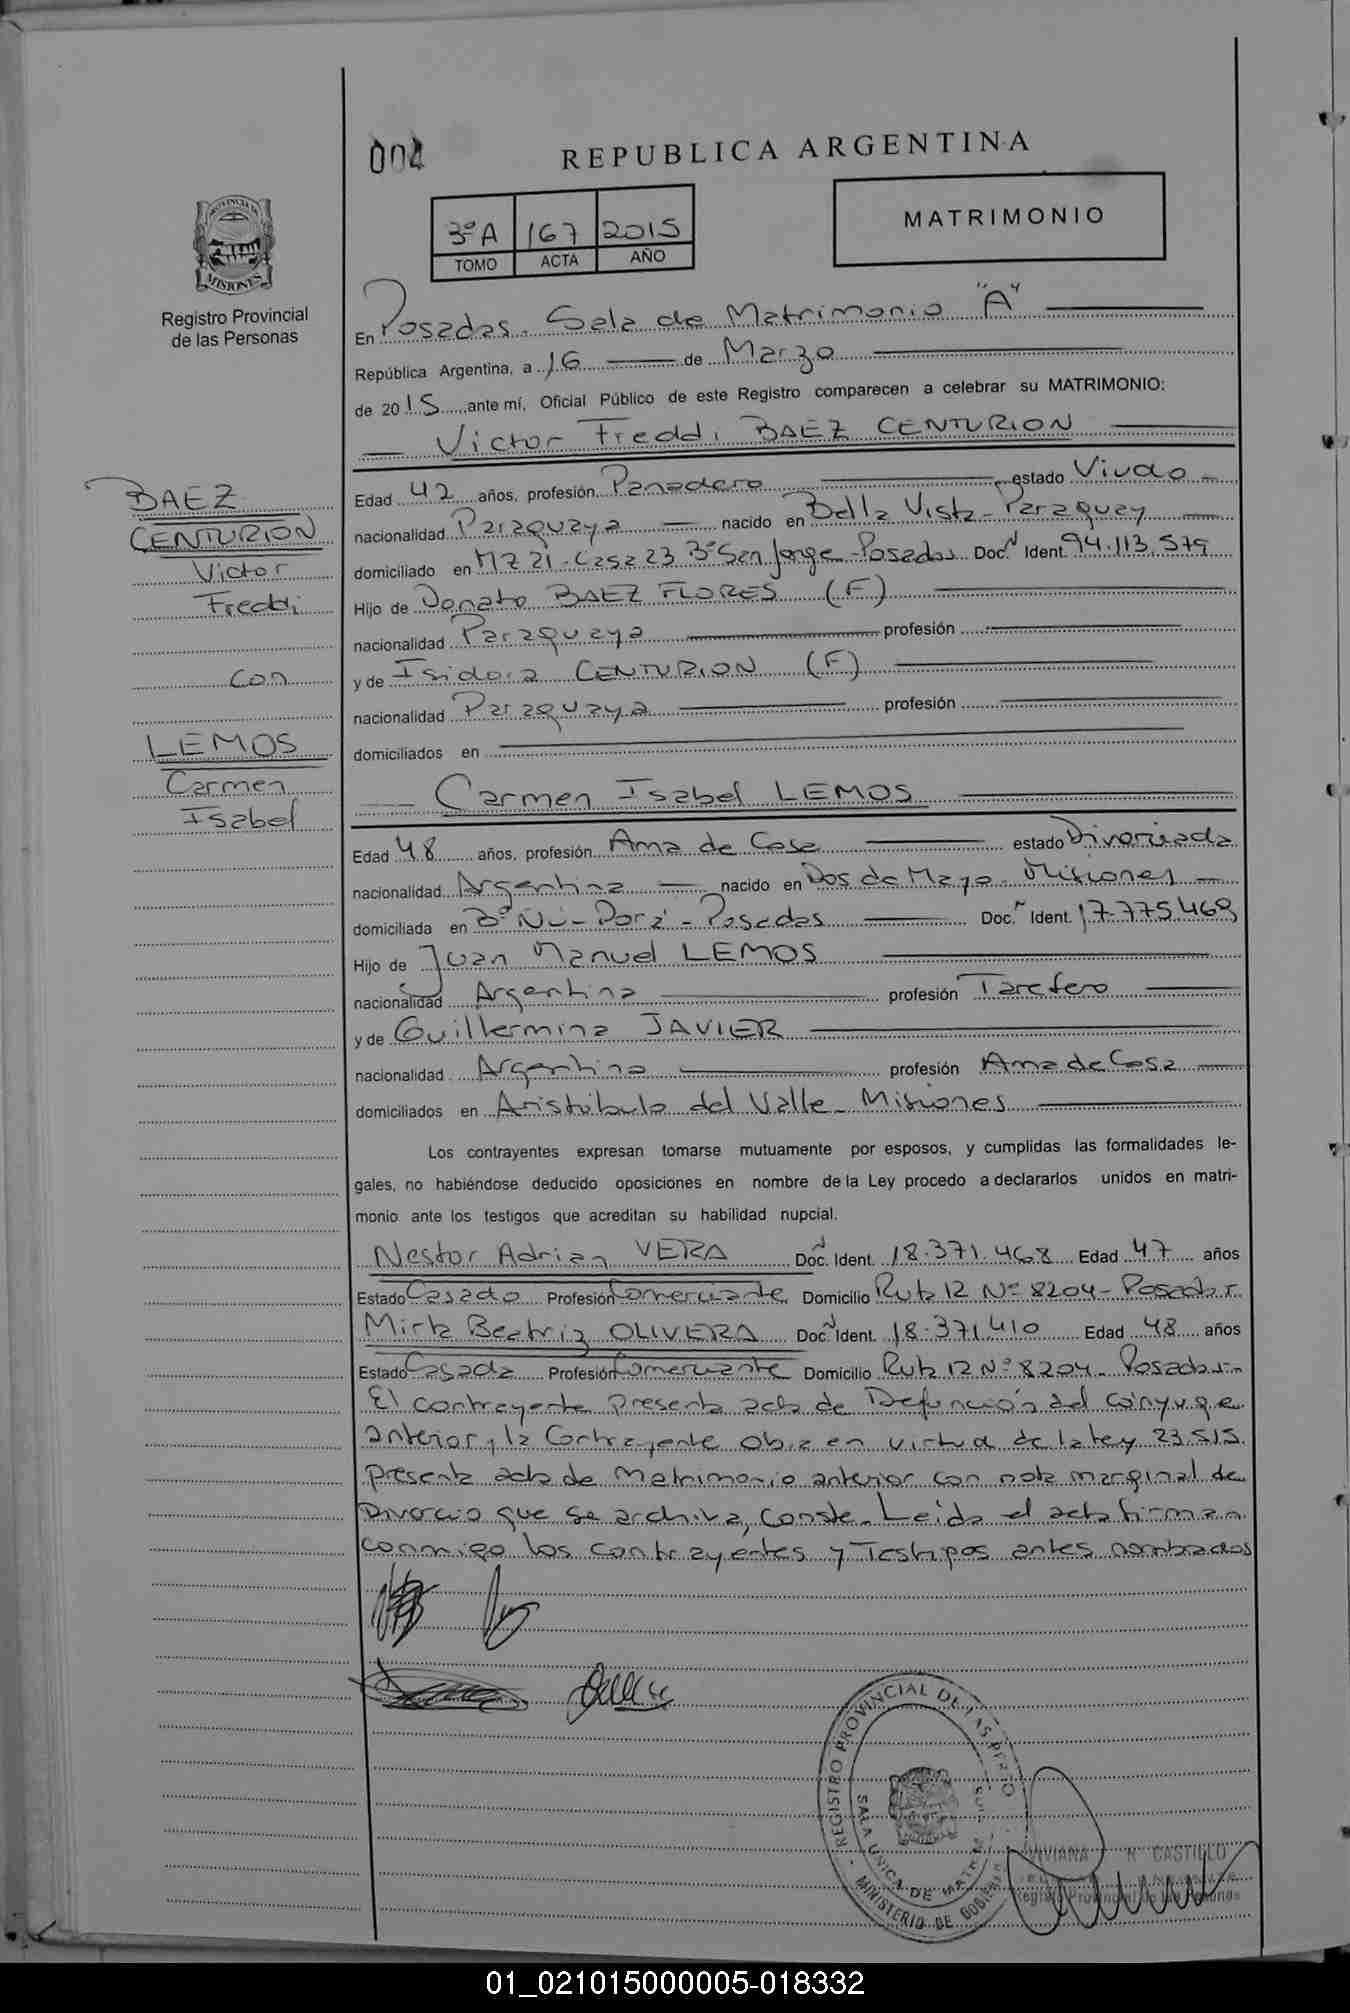 004
REPUBLICA ARGENTINA
3º A 167 2015
TOMO ACTA AÑO
MATRIMONIO
PROVINCIA DE
MISIONES
Registro Provincial
de las Personas
En Posadas. Sala de Matrimonio "A"
República Argentina, a 16 de Marzo
de 2015 ante mí, Oficial Público de este Registro comparecen a celebrar su MATRIMONIO:
Victor Freddi BAEZ CENTURION
BAEZ
CENTURION
Victor
Freddi
con
LEMOS
Carmen
Isabel
Edad 42 años, profesión Panadero estado Viudo
nacionalidad Paraguaya nacido en Bella Vista-Paraguay
domiciliado en MZ 21-Casa 23 Bº San Jorge-Posadas Doc. Ident. 94.113.579
Hijo de Donato BAEZ FLORES (F)
nacionalidad Paraguaya profesión
y de Isidora CENTURION (F)
nacionalidad Paraguaya profesión
domiciliados en
Carmen Isabel LEMOS
Edad 48 años, profesión Ama de Casa estado Divorciada
nacionalidad Argentina nacido en Dos de Mayo-Misiones
domiciliada en Bº Ñu-Porá-Posadas Doc. Ident. 17.775.469
Hijo de Juan Manuel LEMOS
nacionalidad Argentina profesión Tarefero
y de Guillermina JAVIER
nacionalidad Argentina profesión Ama de Casa
domiciliados en Aristobulo del Valle-Misiones
Los contrayentes expresan tomarse mutuamente por esposos, y cumplidas las formalidades le-
gales, no habiéndose deducido oposiciones en nombre de la Ley procedo a declararlos unidos en matri-
monio ante los testigos que acreditan su habilidad nupcial.
Nestor Adrian VERA Doc. Ident. 18.371.468 Edad 47 años
Estado Casado Profesión Comerciante Domicilio Ruta 12 Nº 8204-Posadas
Mirta Beatriz OLIVERA Doc. Ident. 18.371.410 Edad 48 años
Estado Casada Profesión Comerciante Domicilio Ruta 12 Nº 8204-Posadas
El contrayente presenta acta de Defunción del conyuge
anterior, la Contrayente en virtud de la ley 23.515
presenta acta de Matrimonio anterior con nota marginal de
Divorcio que se archiva, conste-Leida el acta firman
conmigo los contrayentes y Testigos antes nombrados
REGISTRO PROVINCIAL DE LAS
SALA UNICA DE MATRIM
MINISTERIO DE GOBIERNO
VIVIANA R CASTILLO
Registro Provincial de las Personas
01_021015000005-018332